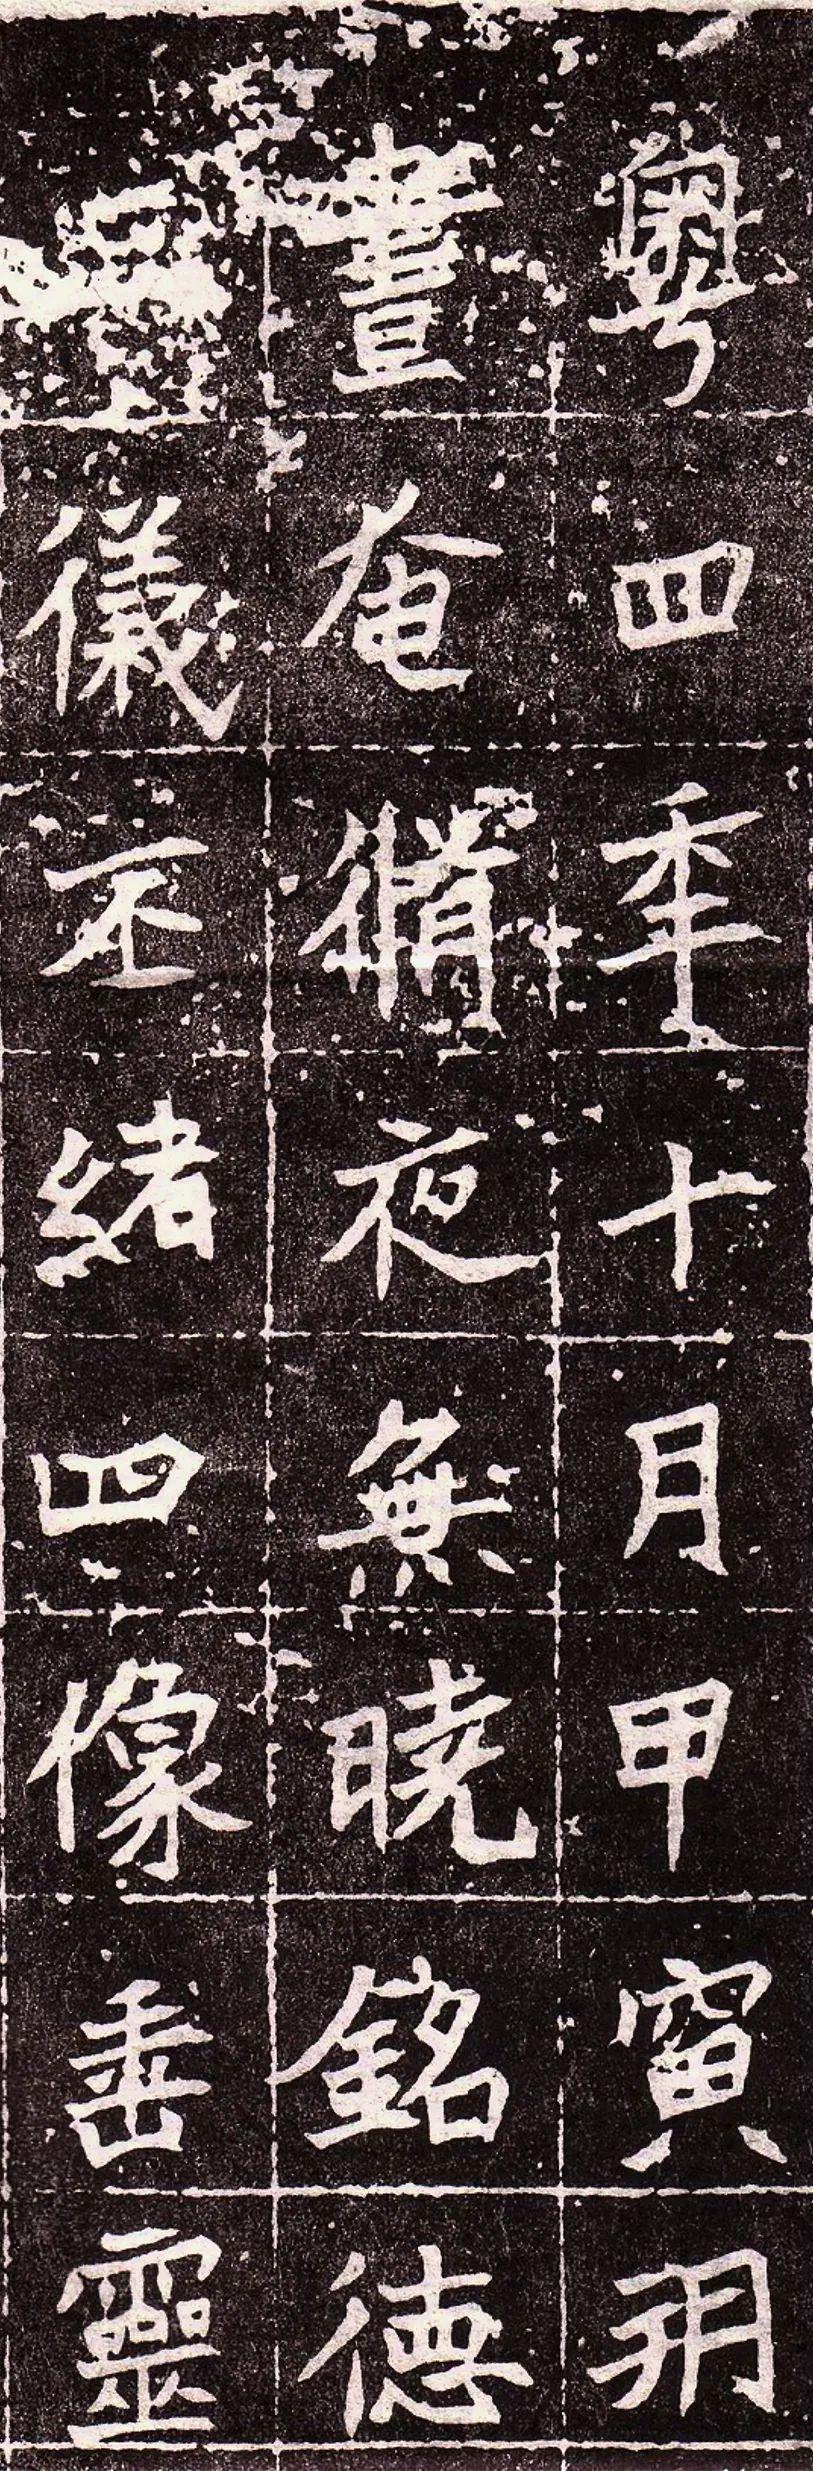 粵四年十月甲寅朔
晝奄脩夜無曉銘德
儀丕緒四像垂靈